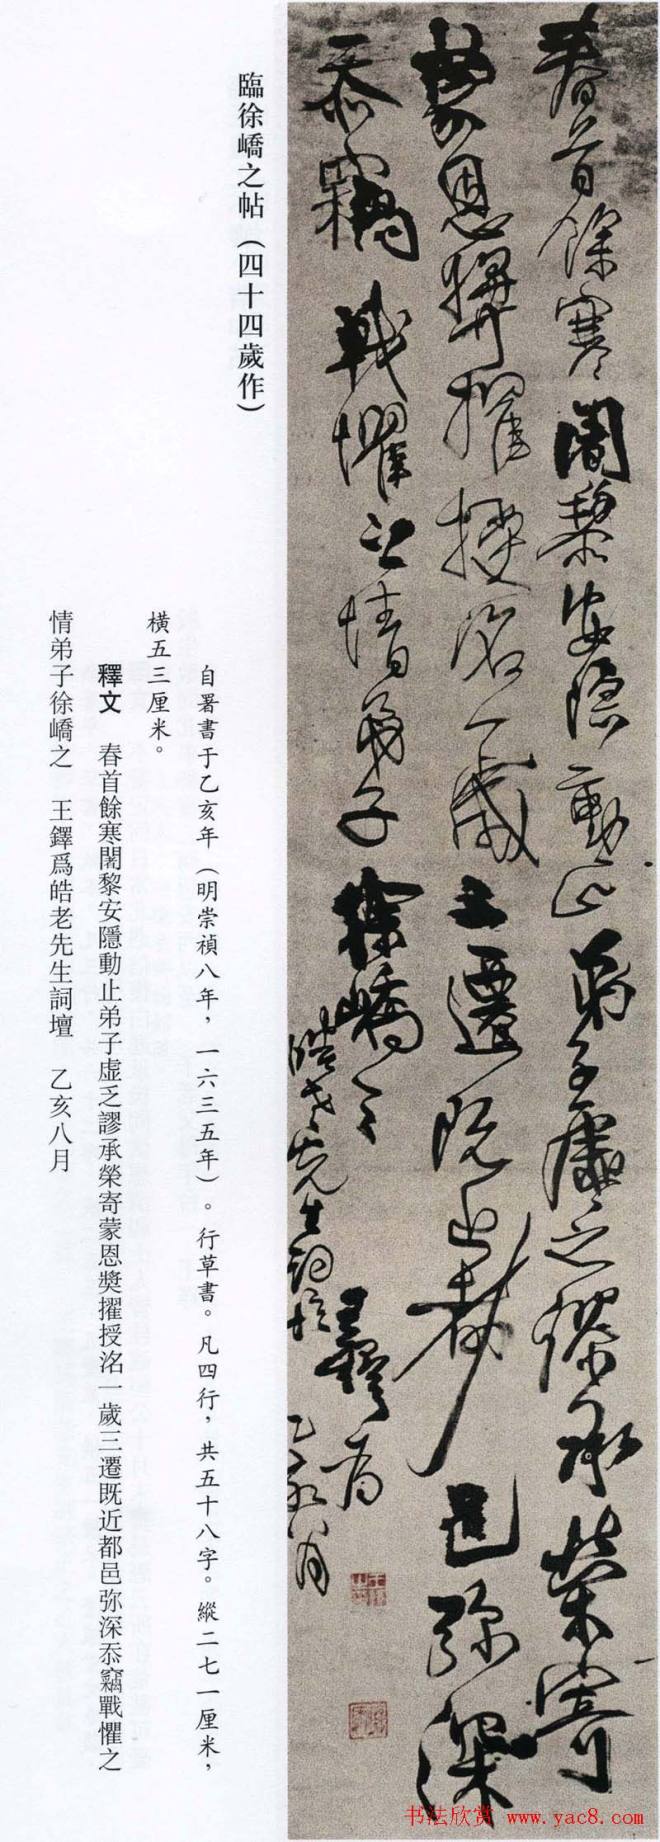 春首餘寒闍黎安隱動止弟子虛乏謬承榮寄
蒙恩獎擢授洺一歲三遷既近都邑弥深
忝竊戰懼之情弟子徐嶠之
王鐸爲
皓老先生詞壇
乙亥八月
臨徐嶠之帖（四十四歲作）
自署書于乙亥年（明崇禎八年，一六三五年）。行草書。凡四行，共五十八字。縱二七一厘米，
橫五三厘米。
釋文 春首餘寒闍黎安隱動止弟子虛乏謬承榮寄蒙恩獎擢授洺一歲三遷既近都邑弥深忝竊戰懼之
情弟子徐嶠之 王鐸爲皓老先生詞壇 乙亥八月
书法欣赏 www.yac8.com